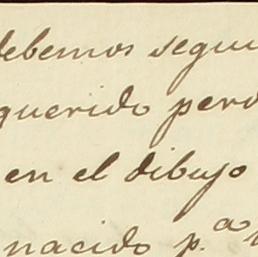 debemos segui
querido perd
en el dibujo
nacido p.ª